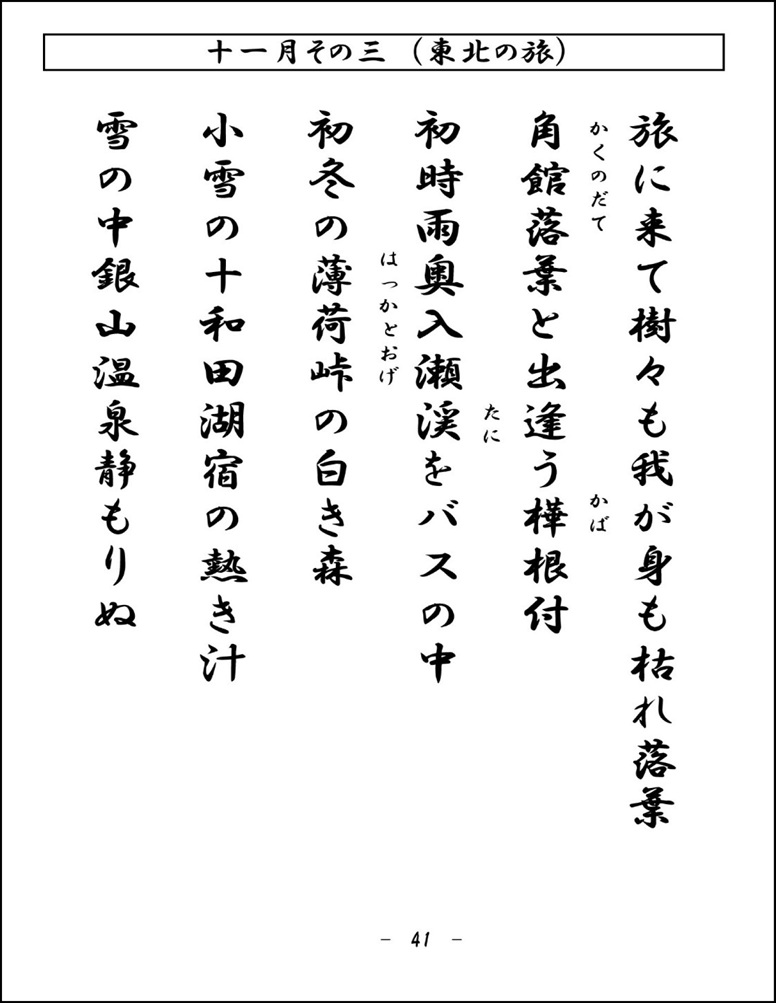 十一月その三 (東北の旅)
旅に来て樹々も我が身も枯れ落葉
かくのだて
かば
角館落葉と出逢う樺根付
たに
初時雨奥入瀬渓をバスの中
はっかとおげ
初冬の薄荷峠の白き森
小雪の十和田湖宿の熱き汁
雪の中銀山温泉静もりぬ
- 41 -